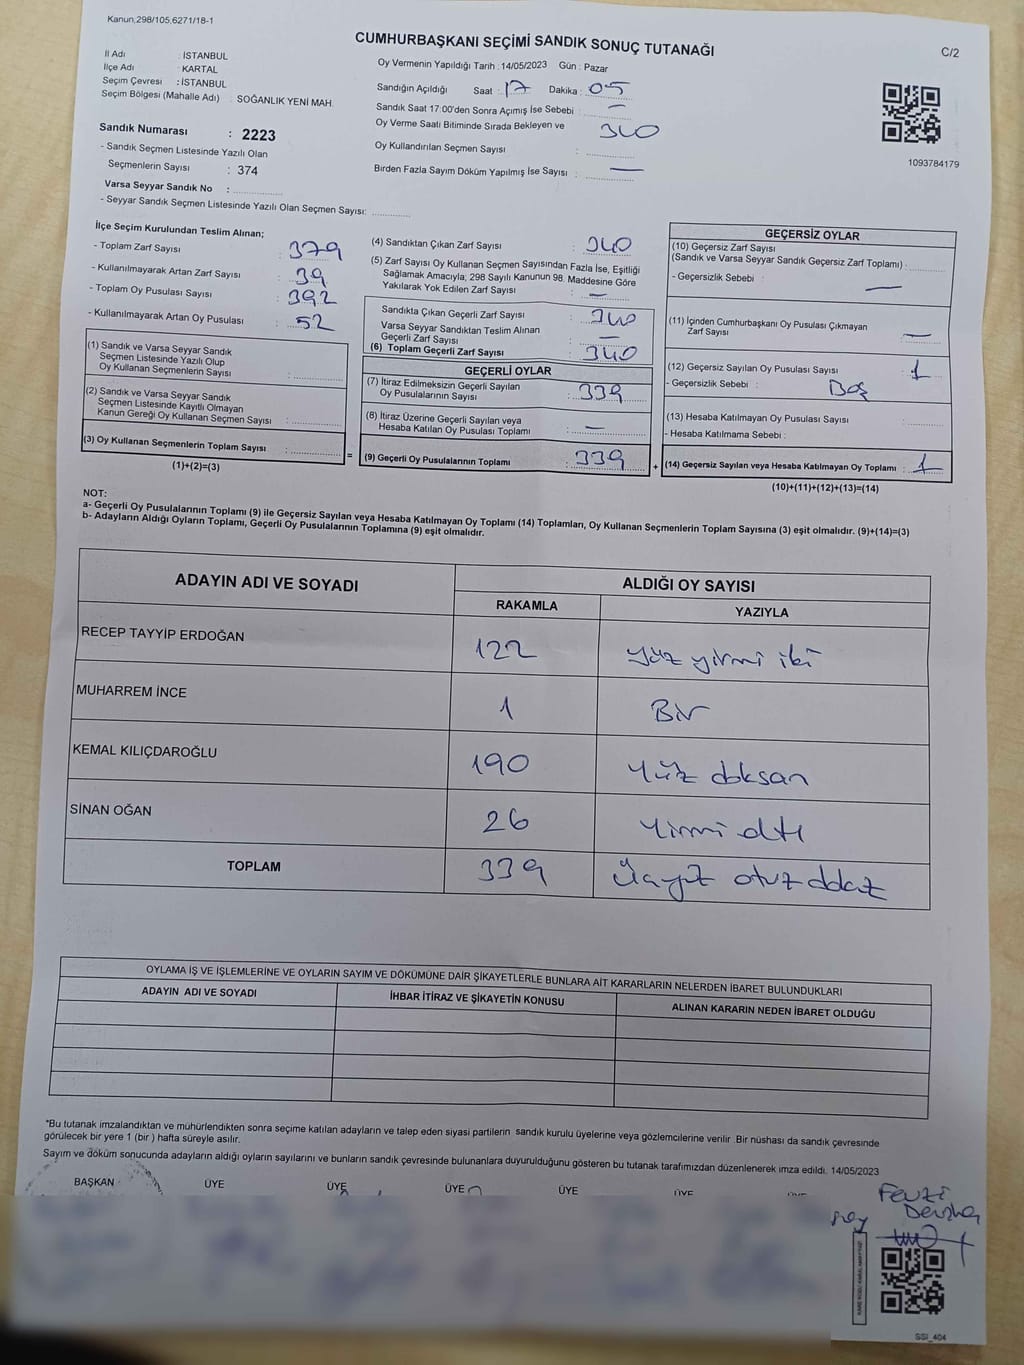 Kanun,298/105,6271/18-1
CUMHURBAŞKANI SEÇİMİ SANDIK SONUÇ TUTANAĞI
C/2
İl Adı : İSTANBUL
İlçe Adı : KARTAL
Seçim Çevresi : İSTANBUL
Seçim Bölgesi (Mahalle Adı) : SOĞANLIK YENİ MAH.
Oy Vermenin Yapıldığı Tarih :14/05/2023 Gün : Pazar
Sandığın Açıldığı Saat : 17 Dakika : 05
Sandık Saat 17:00'den Sonra Açımış İse Sebebi : —
Oy Verme Saati Bitiminde Sırada Bekleyen ve 340
Oy Kullandırılan Seçmen Sayısı :
Birden Fazla Sayım Döküm Yapılmış İse Sayısı : —
1093784179
Sandık Numarası : 2223
- Sandık Seçmen Listesinde Yazılı Olan
Seçmenlerin Sayısı : 374
Varsa Seyyar Sandık No :
- Seyyar Sandık Seçmen Listesinde Yazılı Olan Seçmen Sayısı:
İlçe Seçim Kurulundan Teslim Alınan;
- Toplam Zarf Sayısı : 379
- Kullanılmayarak Artan Zarf Sayısı : 39
- Toplam Oy Pusulası Sayısı : 392
- Kullanılmayarak Artan Oy Pusulası : 52
(1) Sandık ve Varsa Seyyar Sandık
Seçmen Listesinde Yazılı Olup
Oy Kullanan Seçmenlerin Sayısı :
(2) Sandık ve Varsa Seyyar Sandık
Seçmen Listesinde Kayıtlı Olmayan
Kanun Gereği Oy Kullanan Seçmen Sayısı :
(3) Oy Kullanan Seçmenlerin Toplam Sayısı :
(1)+(2)=(3)
=
(4) Sandıktan Çıkan Zarf Sayısı : 340
(5) Zarf Sayısı Oy Kullanan Seçmen Sayısından Fazla İse, Eşitliği
Sağlamak Amacıyla; 298 Sayılı Kanunun 98. Maddesine Göre
Yakılarak Yok Edilen Zarf Sayısı : —
Sandıkta Çıkan Geçerli Zarf Sayısı : 340
Varsa Seyyar Sandıktan Teslim Alınan
Geçerli Zarf Sayısı : —
(6) Toplam Geçerli Zarf Sayısı : 340
GEÇERLİ OYLAR
(7) İtiraz Edilmeksizin Geçerli Sayılan
Oy Pusulalarının Sayısı : 339
(8) İtiraz Üzerine Geçerli Sayılan veya
Hesaba Katılan Oy Pusulası Toplamı : —
(9) Geçerli Oy Pusulalarının Toplamı : 339
+
GEÇERSİZ OYLAR
(10) Geçersiz Zarf Sayısı
(Sandık ve Varsa Seyyar Sandık Geçersiz Zarf Toplamı) :
- Geçersizlik Sebebi : —
(11) İçinden Cumhurbaşkanı Oy Pusulası Çıkmayan
Zarf Sayısı : —
(12) Geçersiz Sayılan Oy Pusulası Sayısı : 1
- Geçersizlik Sebebi : Boş
(13) Hesaba Katılmayan Oy Pusulası Sayısı :
- Hesaba Katılmama Sebebi :
(14) Geçersiz Sayılan veya Hesaba Katılmayan Oy Toplamı : 1
(10)+(11)+(12)+(13)=(14)
NOT:
a- Geçerli Oy Pusulalarının Toplamı (9) ile Geçersiz Sayılan veya Hesaba Katılmayan Oy Toplamı (14) Toplamları, Oy Kullanan Seçmenlerin Toplam Sayısına (3) eşit olmalıdır. (9)+(14)=(3)
b- Adayların Aldığı Oyların Toplamı, Geçerli Oy Pusulalarının Toplamına (9) eşit olmalıdır.
ADAYIN ADI VE SOYADI
ALDIĞI OY SAYISI
RAKAMLA YAZIYLA
RECEP TAYYİP ERDOĞAN 122 yüz yirmi iki
MUHARREM İNCE 1 Bir
KEMAL KILIÇDAROĞLU 190 yüz doksan
SİNAN OĞAN 26 Yirmi altı
TOPLAM 339 Üçyüz otuz dokuz
OYLAMA İŞ VE İŞLEMLERİNE VE OYLARIN SAYIM VE DÖKÜMÜNE DAİR ŞİKAYETLERLE BUNLARA AİT KARARLARIN NELERDEN İBARET BULUNDUKLARI
ADAYIN ADI VE SOYADI İHBAR İTİRAZ VE ŞİKAYETİN KONUSU ALINAN KARARIN NEDEN İBARET OLDUĞU
*Bu tutanak imzalandıktan ve mühürlendikten sonra seçime katılan adayların ve talep eden siyasi partilerin sandık kurulu üyelerine veya gözlemcilerine verilir Bir nüshası da sandık çevresinde
görülecek bir yere 1 (bir ) hafta süreyle asılır.
Sayım ve döküm sonucunda adayların aldığı oyların sayılarını ve bunların sandık çevresinde bulunanlara duyurulduğunu gösteren bu tutanak tarafımızdan düzenlenerek imza edildi. 14/05/2023
BAŞKAN ÜYE ÜYE ÜYE ÜYE ÜYE
Fevzi
SSI_404